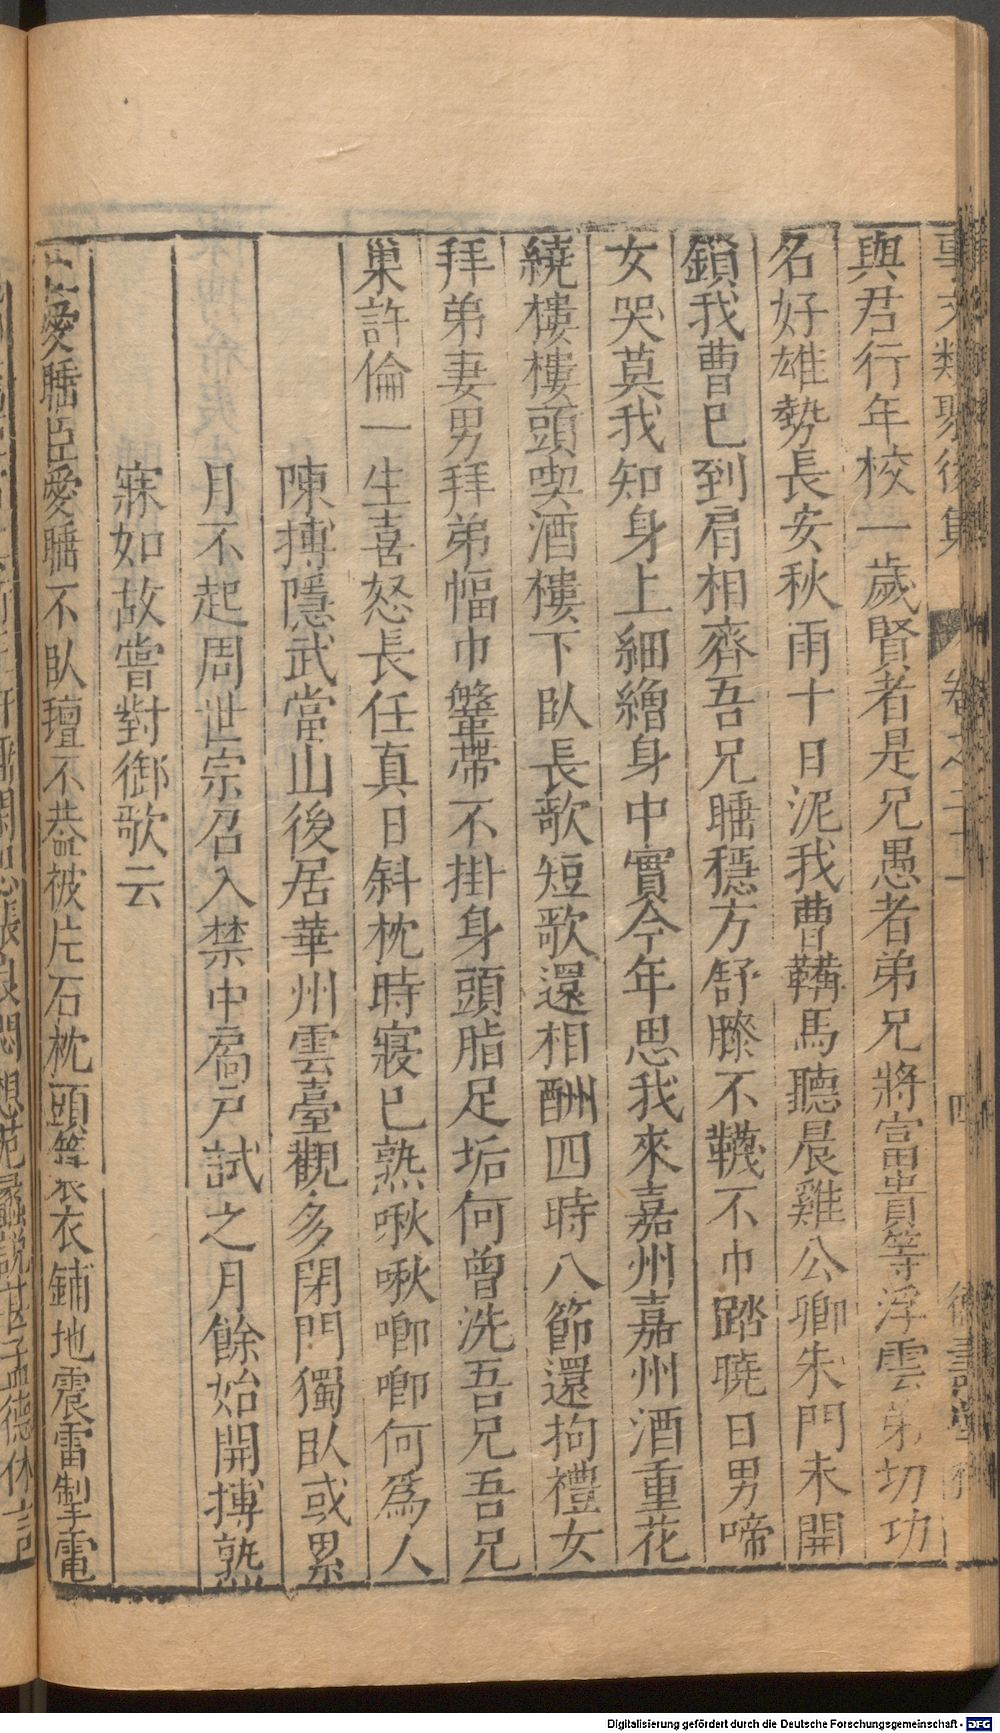 事文類聚後集 卷之二十一 四 德壽堂
與君行年校一歲賢者是兄愚者弟兄將富貴等浮雲弟切功
名好雄勢長安秋雨十日泥我曹鞲馬聽晨雞公卿朱門未開
鎖我曹已到肩相齊吾兄睡穩方舒膝不韈不巾踏曉日男啼
女哭莫我知身上細繒身中實今年思我來嘉州嘉州酒重花
繞樓樓頭喫酒樓下臥長歌短歌還相酬四時八節還拘禮女
拜弟妻男拜弟幅巾鞶帶不掛身頭脂足垢何曾洗吾兄吾兄
巢許倫一生喜怒長任真日斜枕時寢已熟啾啾唧唧何為人
陳摶隱武當山後居華州雲臺觀多閉門獨臥或累
月不起周世宗召入禁中扃戶試之月餘始開摶熟
寐如故嘗對御歌云
愛睡臣愛睡不臥氊不葢被片石枕頭簑衣鋪地震雷掣電
Digitalisierung gefördert durch die Deutsche Forschungsgemeinschaft - DFG